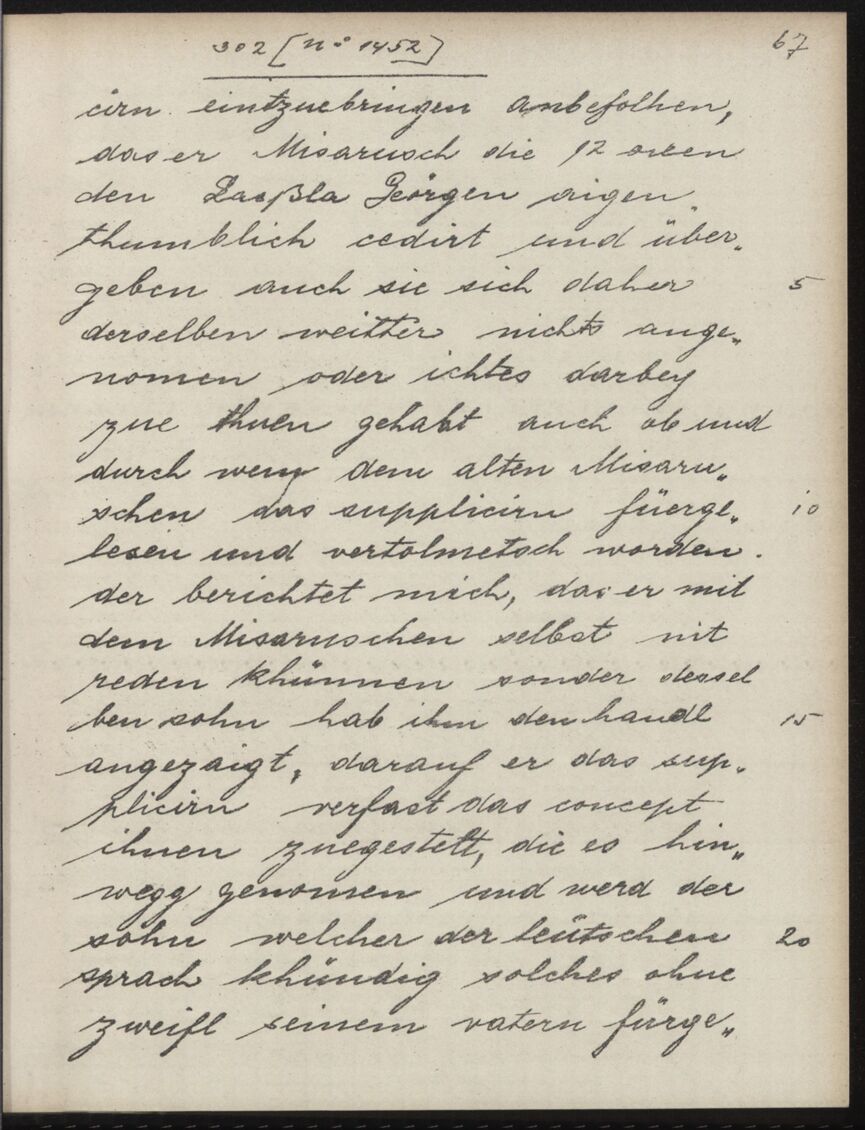 302 [No 1452] 67
cirn eintzuebringen anbefolhen,
das er Misarusch die 12 oxen
den Laßla Georgen aigen
thumblich cedirt und über„
geben auch sie sich daher 5
derselben weitter nichts ange„
nomen oder ichtes darbey
zue thuen gehabt auch ob und
durch wem dem alten Misaru„
schen das supplicirn füerge„ 10
lesen und vertolmetsch worden.
der berichtet mich, das er mit
dem Misaruschen selbst nit
reden khünnen sonder dessel
ben sohn hab ihm den handl 15
angezaigt, darauf er das sup„
plicirn verfast das concept
ihnen zuegestelt, die es hin„
wegg genomen und werd der
sohn welcher der teütschen 20
sprach khündig solches ohne
zweifl seinem vatern fürge„